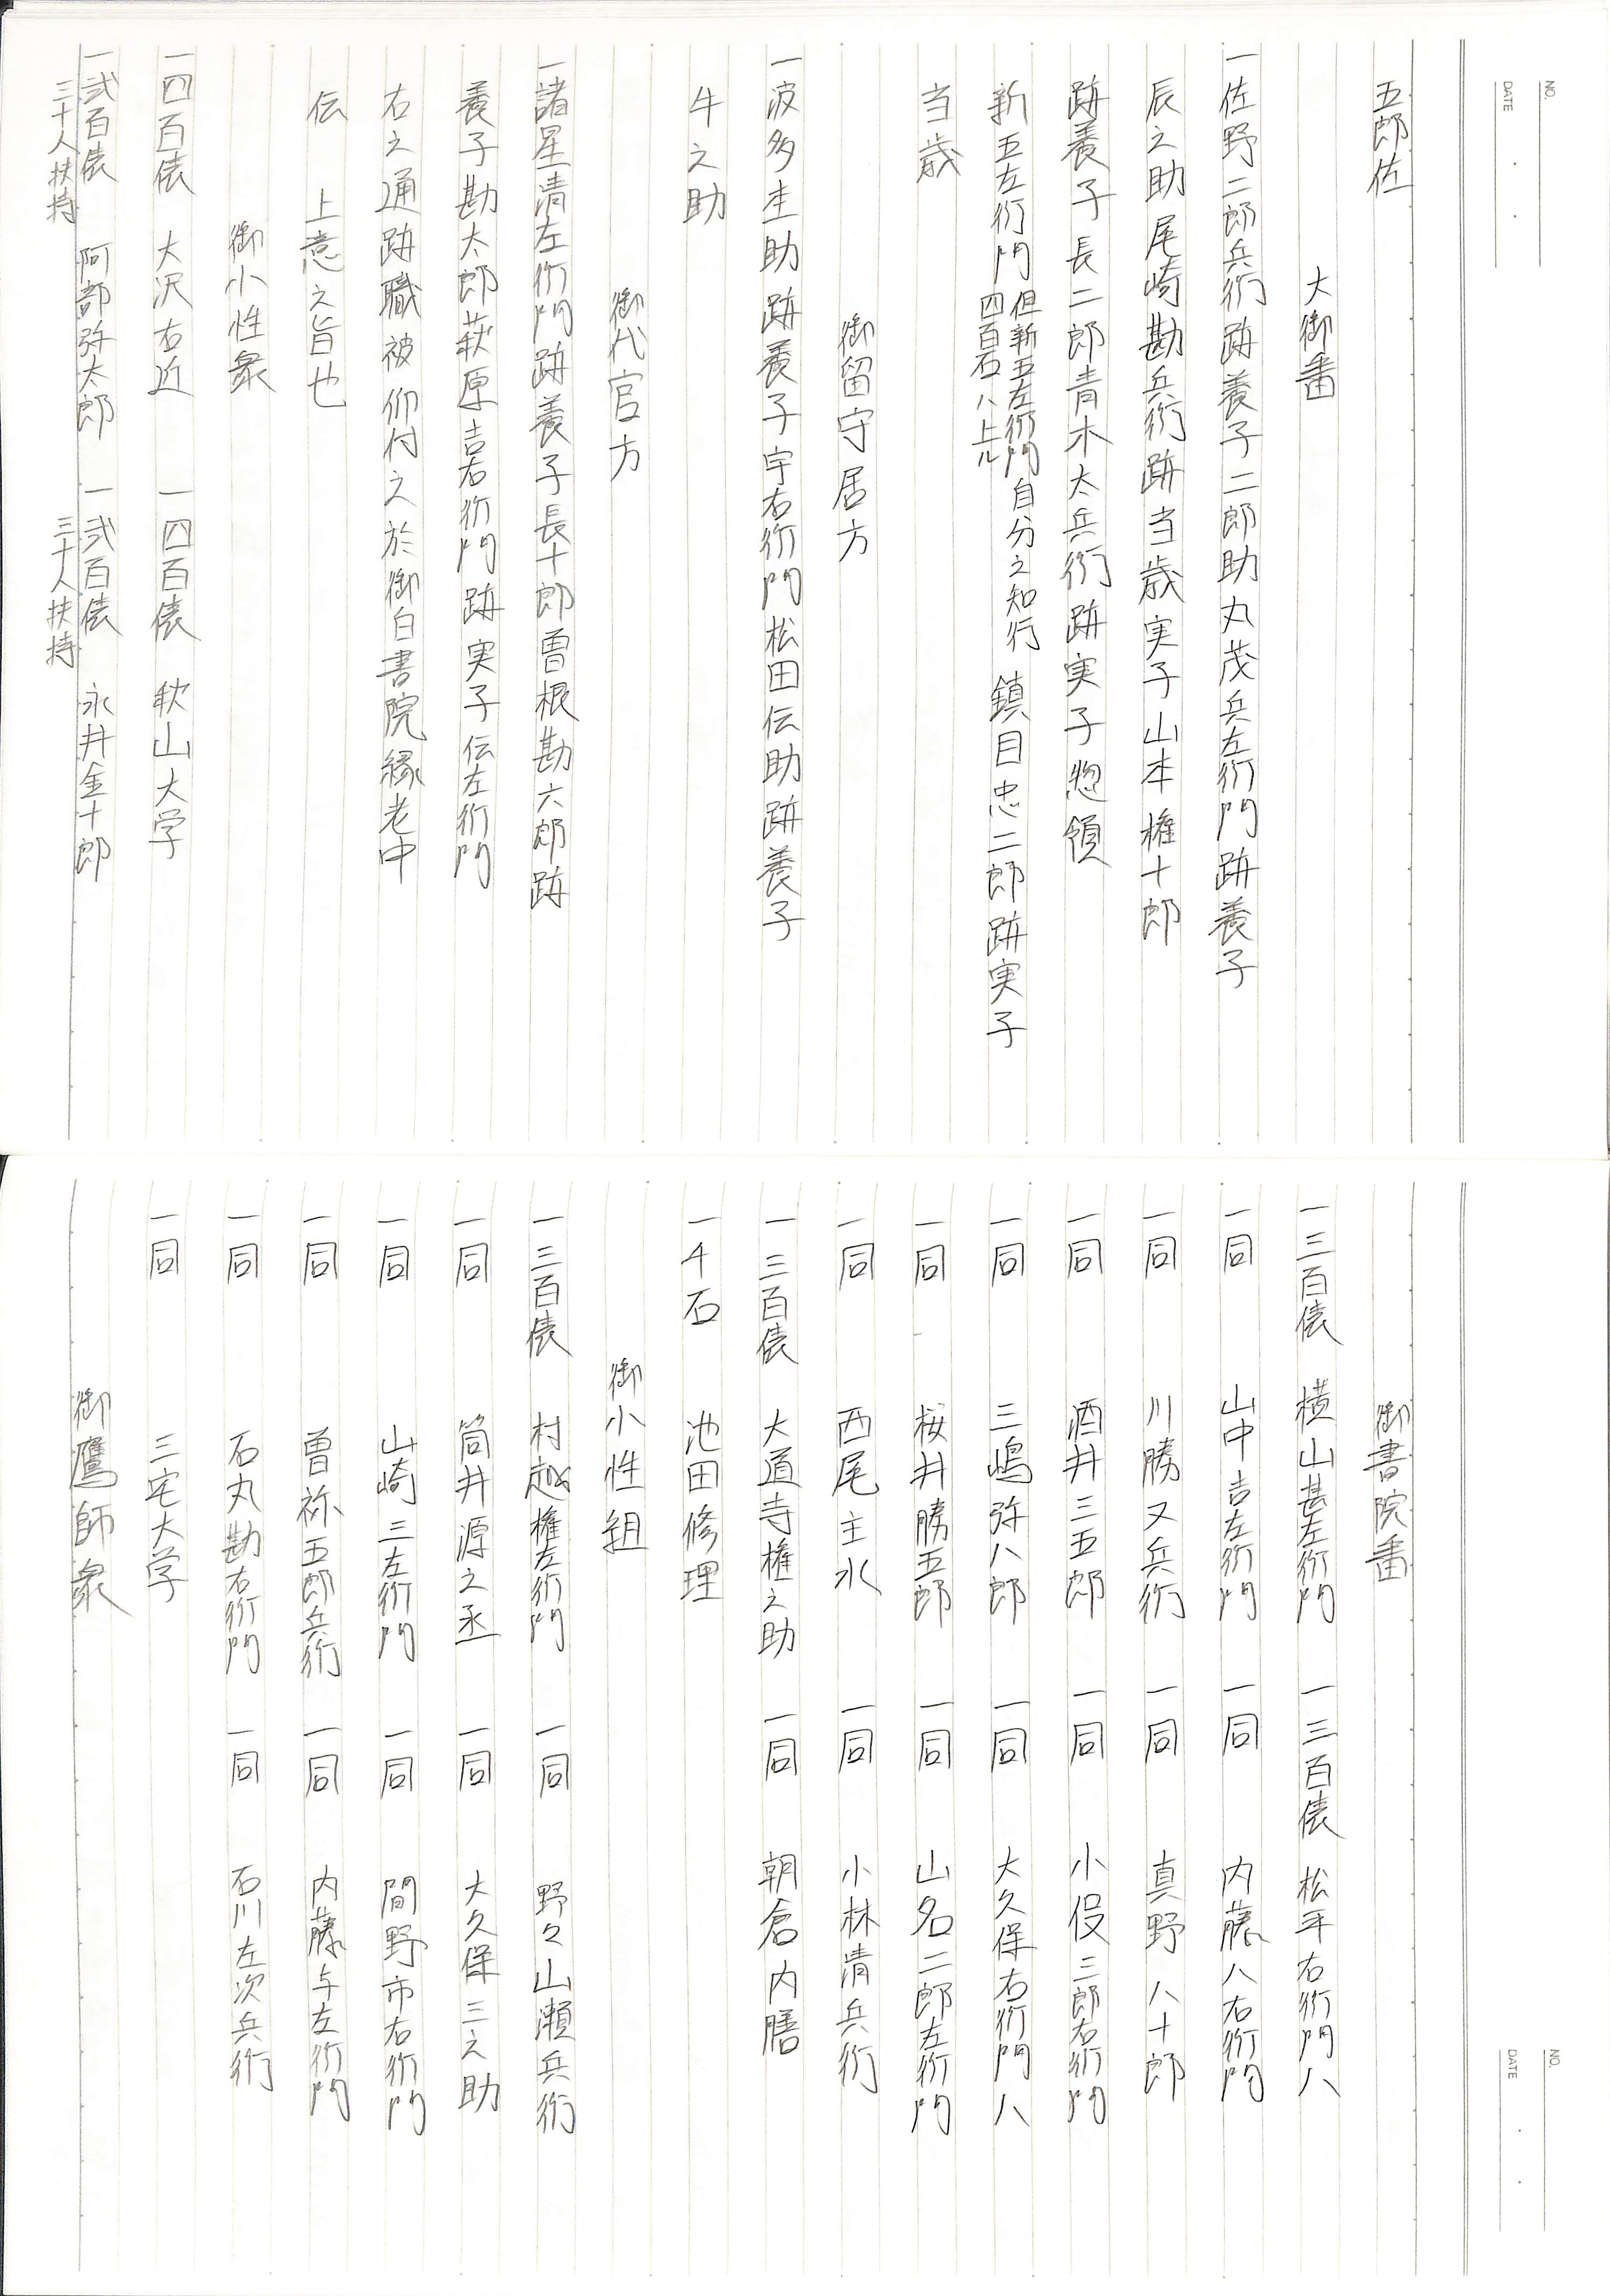 五郎佐
大御番
一佐野二郎兵衛跡養子二郎助丸茂兵左衛門跡養子
辰之助尾崎勘兵衛跡当歳実子山本権十郎
跡養子長二郎青木太兵衛跡実子惣領
新五左衛門但新五左衛門自分之知行四百石ハ上ル鎮目忠二郎跡実子
当歳
御留守居方
一波多圭助跡養子宇右衛門松田伝助跡養子
牛之助
御代官方
一諸星清左衛門跡養子長十郎曽根勘六郎跡
養子勘太郎萩原吉右衛門跡実子伝左衛門
右之通跡職被仰付之於御白書院縁老中
伝 上意之旨也
御小性衆
一四百俵 大沢右近 一四百俵 秋山大学
一弐百俵 三十人扶持 阿部弥太郎 一弐百俵 三十人扶持 永井金十郎
御書院番
一三百俵 横山甚左衛門 一三百俵 松平右衛門八
一同 山中吉左衛門 一同 内藤八右衛門
一同 川勝又兵衛 一同 真野八十郎
一同 酒井三五郎 一同 小俣三郎右衛門
一同 三嶋弥八郎 一同 大久保右衛門八
一同 桜井勝五郎 一同 山名二郎左衛門
一同 西尾主水 一同 小林清兵衛
一三百俵 大道寺権之助 一同 朝倉内膳
一千石 池田修理
御小性組
一三百俵 村越権左衛門 一同 野々山瀬兵衛
一同 筒井源之丞 一同 大久保三之助
一同 山崎三左衛門 一同 間野市右衛門
一同 曽祢五郎兵衛 一同 内藤与左衛門
一同 石丸勘右衛門 一同 石川左次兵衛
一同 三宅大学
御鷹師衆
NO.
DATE
NO.
DATE